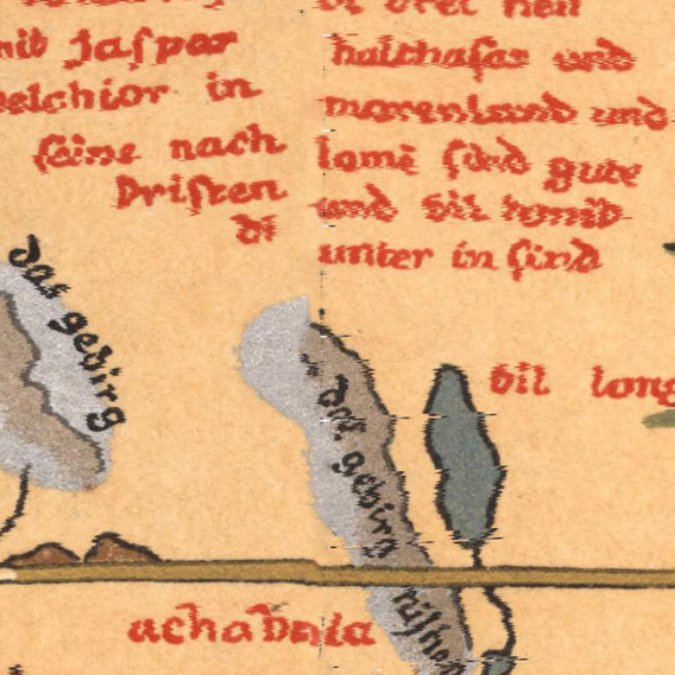 mit Jaſpar
in
ſeine nach
Driſten
di
di drei heil
balthaſar und
morenland und
ſind gute
und vil
unter in ſind
das gebirg
das gebirg
vil long